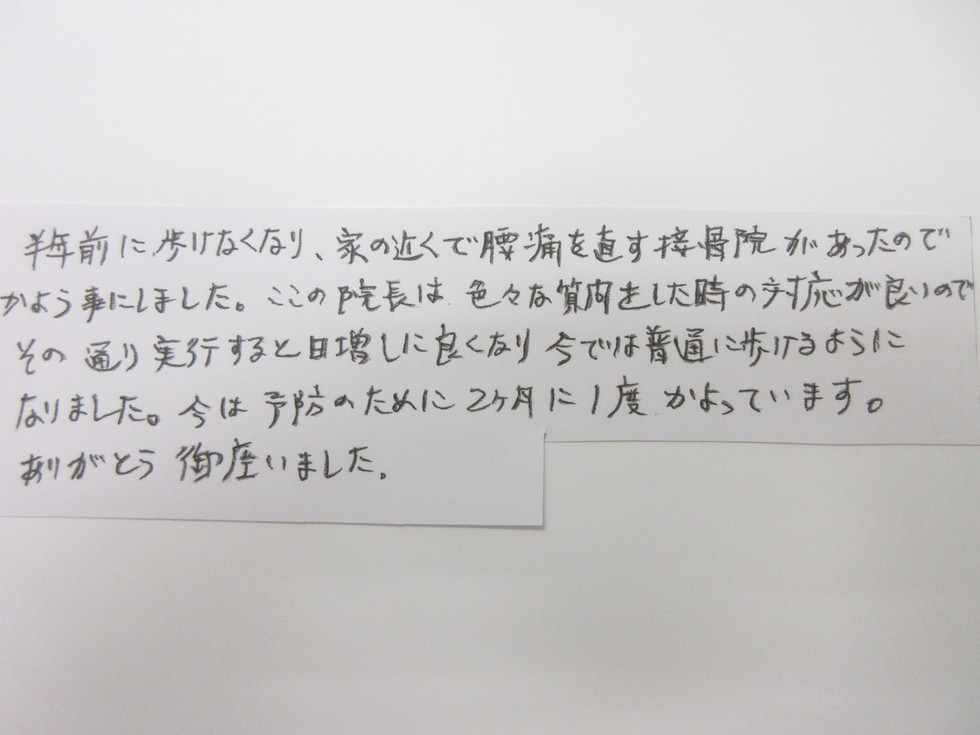 半年前に歩けなくなり、家の近くで腰痛を直す接骨院があったので
かよう事にしました。ここの院長は色々な質問をした時の対応が良いので
その通り実行すると日増しに良くなり今では普通に歩けるように
なりました。今は予防のために2ヶ月に1度かよっています。
ありがとう御座いました。